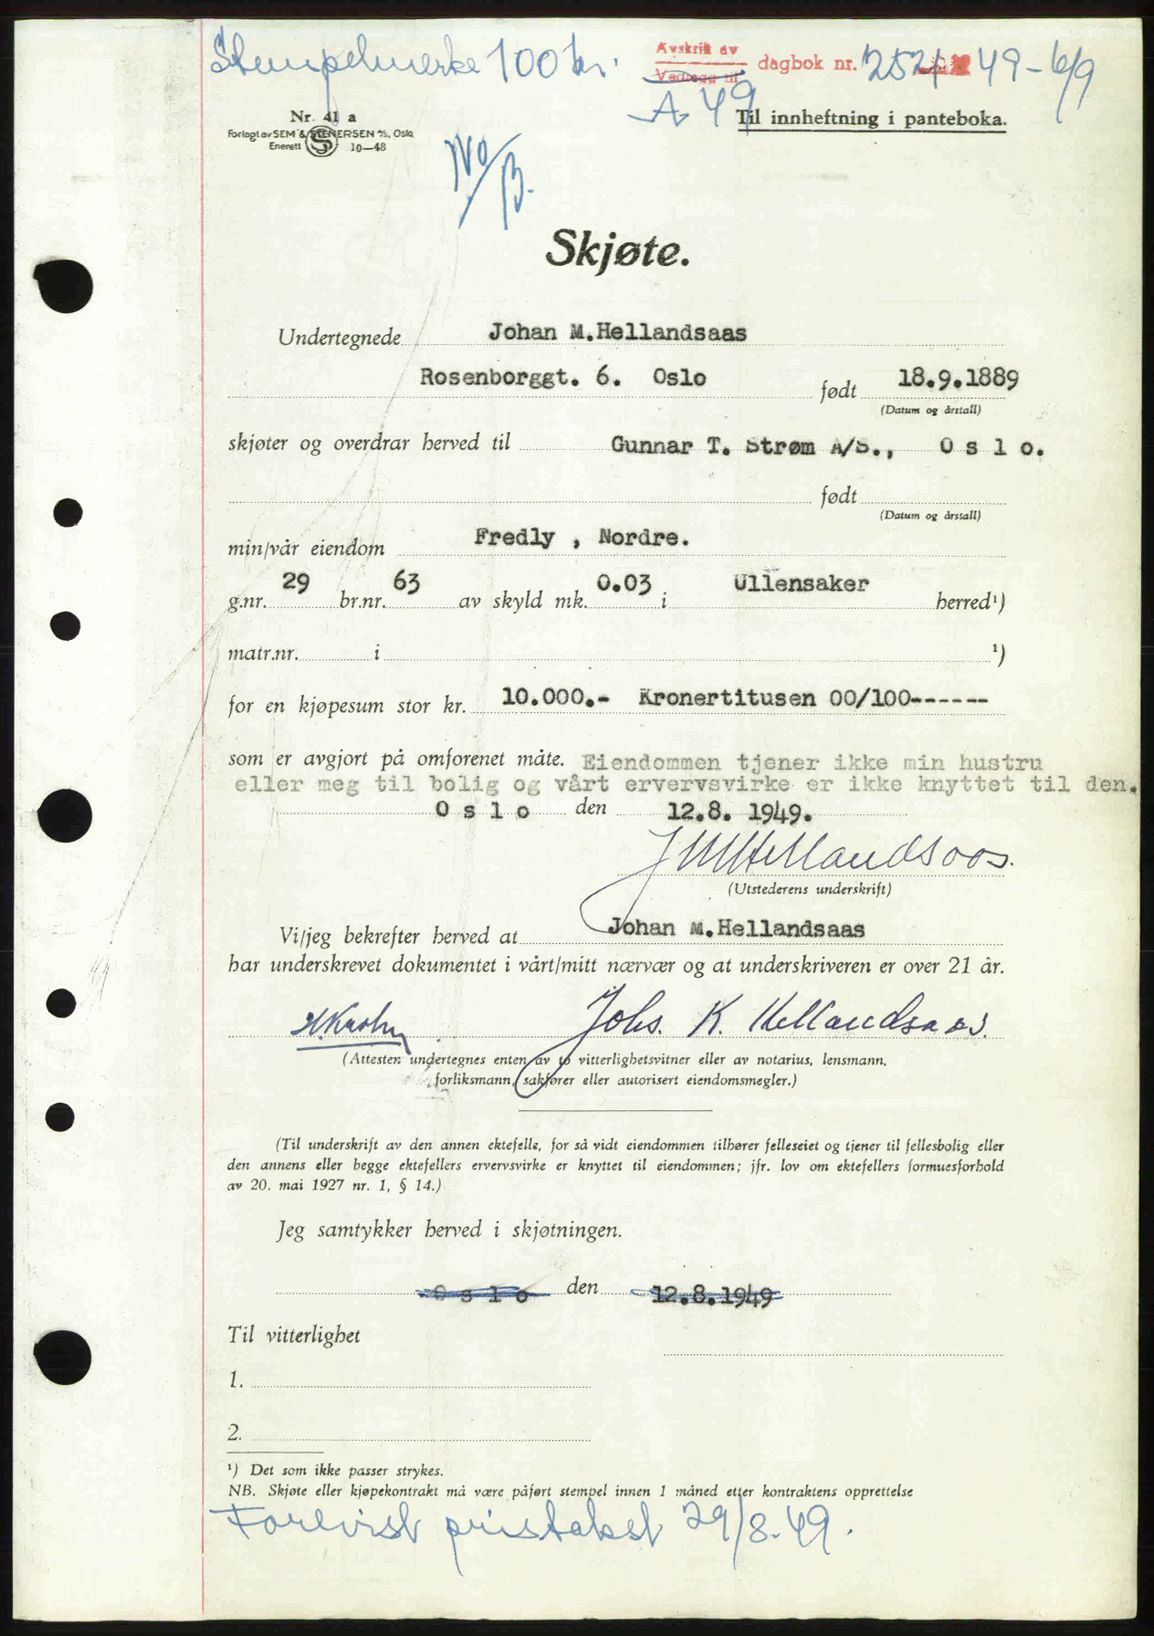 Stempelmerke 100 kr.
Avskrift av
Vedlegg til
dagbok nr. 2521 49-6/9
A 49
Til innheftning i panteboka.
Nr. 41 a
Forlagt av SEM & STENERSEN A/S, Oslo
Enerett S 10—48
Skjøte.
Undertegnede Johan M.Hellandsaas
Rosenborggt. 6. Oslo født 18.9.1889
(Datum og årstall)
skjøter og overdrar herved til Gunnar T. Strøm A/S., O s l o.
født
(Datum og årstall)
min/vår eiendom Fredly , Nordre.
g.nr. 29 br.nr. 63 av skyld mk. 0.03 i Ullensaker herred¹)
matr.nr. i ¹)
for en kjøpesum stor kr. 10.000.- Kronertitusen 00/100------
som er avgjort på omforenet måte. Eiendommen tjener ikke min hustru
eller meg til bolig og vårt ervervsvirke er ikke knyttet til den.
O s l o den 12.8. 1949.
J M Hellandsaas.
(Utstederens underskrift)
Vi/jeg bekrefter herved at Johan M.Hellandsaas
har underskrevet dokumentet i vårt/mitt nærvær og at underskriveren er over 21 år.
Johs. K. Hellandsaas.
(Attesten undertegnes enten av to vitterlighetsvitner eller av notarius, lensmann,
forliksmann, sakfører eller autorisert eiendomsmegler.)
(Til underskrift av den annen ektefelle, for så vidt eiendommen tilhører felleseiet og tjener til fellesbolig eller
den annens eller begge ektefellers ervervsvirke er knyttet til eiendommen; jfr. lov om ektefellers formuesforhold
av 20. mai 1927 nr. 1, § 14.)
Jeg samtykker herved i skjøtningen.
O s l o den 12.8.1949
Til vitterlighet
1.
2.
¹) Det som ikke passer strykes.
NB. Skjøte eller kjøpekontrakt må være påført stempel innen 1 måned etter kontraktens opprettelse
Forevist pristakst 29/8-49.